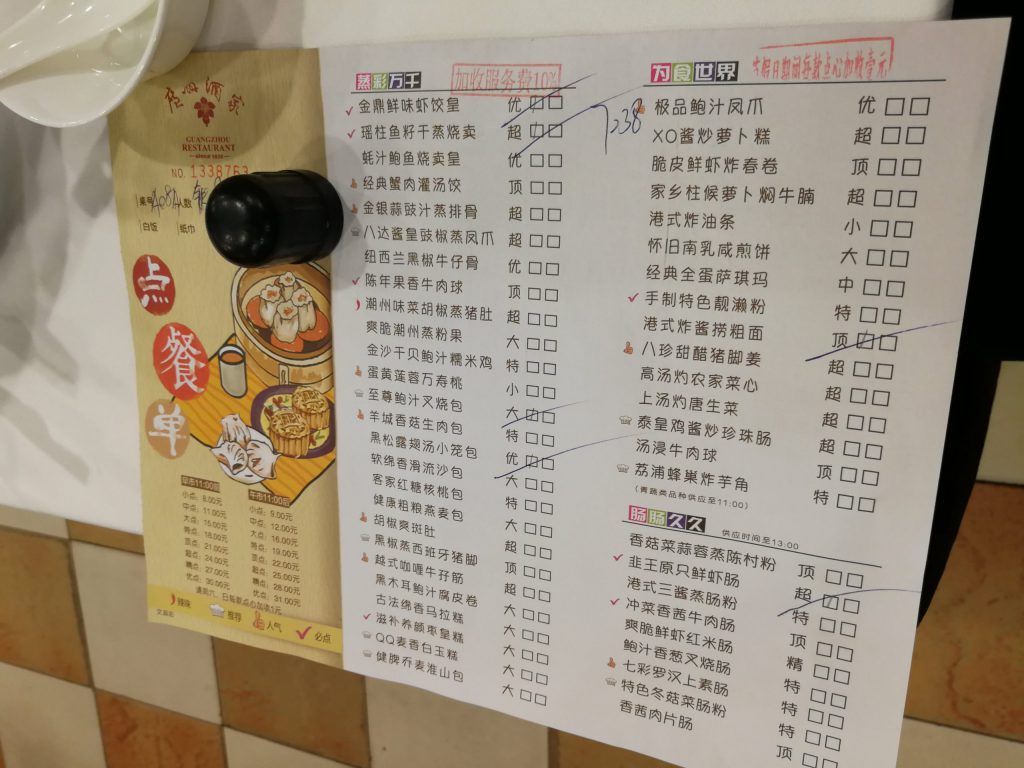 广州酒家
GUANGZHOU
RESTAURANT
since 1935
NO. 1338763
桌号 A08A 人数
白饭 纸巾
点
餐
单
早市11:00前
小点: 8.00元
中点: 11.00元
大点: 15.00元
特点: 18.00元
顶点: 21.00元
超点: 24.00元
精点: 27.00元
优点: 30.00元
午市11:00后
小点: 9.00元
中点: 12.00元
大点: 16.00元
特点: 19.00元
顶点: 22.00元
超点: 25.00元
精点: 28.00元
优点: 31.00元
逢周六、日每款点心加收1元
辣辣 推荐 人气 必点
蒸彩万千
加收服务费10%
金鼎鲜味虾饺皇 优
瑶柱鱼籽干蒸烧卖 超
蚝汁鲍鱼烧卖皇 优
经典蟹肉灌汤饺 顶
金银蒜豉汁蒸排骨 超
八达酱皇豉椒蒸凤爪 超
纽西兰黑椒牛仔骨 优
陈年果香牛肉球 顶
潮州味菜胡椒蒸猪肚 超
爽脆潮州蒸粉果 大
金沙干贝鲍汁糯米鸡 特
蛋黄莲蓉万寿桃 小
至尊鲍汁叉烧包 大
羊城香菇生肉包 特
黑松露翅汤小笼包 优
软绵香滑流沙包 大
客家红糖核桃包 特
健康粗粮燕麦包 大
胡椒爽斑肚 超
黑椒蒸西班牙猪脚 顶
越式咖喱牛孖筋 超
黑木耳鲍汁腐皮卷 大
古法绵香马拉糕 大
滋补养颜枣皇糕 大
QQ麦香白玉糕 大
健脾乔麦淮山包 大
7238
为食世界
节假日期间每款点心加收壹元
极品鲍汁凤爪 优
XO酱炒萝卜糕 超
脆皮鲜虾炸春卷 顶
家乡柱候萝卜焖牛腩 超
港式炸油条 小
怀旧南乳咸煎饼 大
经典全蛋萨琪玛 中
手制特色靓濑粉 特
港式炸酱捞粗面 顶
八珍甜醋猪脚姜 超
高汤灼农家菜心 超
上汤灼唐生菜 超
泰皇鸡酱炒珍珠肠 超
汤浸牛肉球 顶
荔浦蜂巢炸芋角 特
(青蔬类品种供应至11:00)
肠肠久久
供应时间至13:00
香菇菜蒜蓉蒸陈村粉 顶
韭王原只鲜虾肠 超
港式三酱蒸肠粉 特
冲菜香茜牛肉肠 顶
爽脆鲜虾红米肠 精
鲍汁香葱叉烧肠 特
七彩罗汉上素肠 特
特色冬菇菜肠粉 特
香茜肉片肠 顶